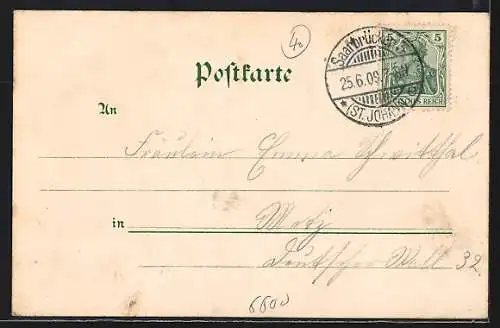 40
Saarbrücken 3
25.6.09. 7-8N
* (ST. JOHANN)
5
DEUTSCHES REICH
Postkarte
An
Fräulein Emma
in Metz
Deutscher Wall 32.
6600